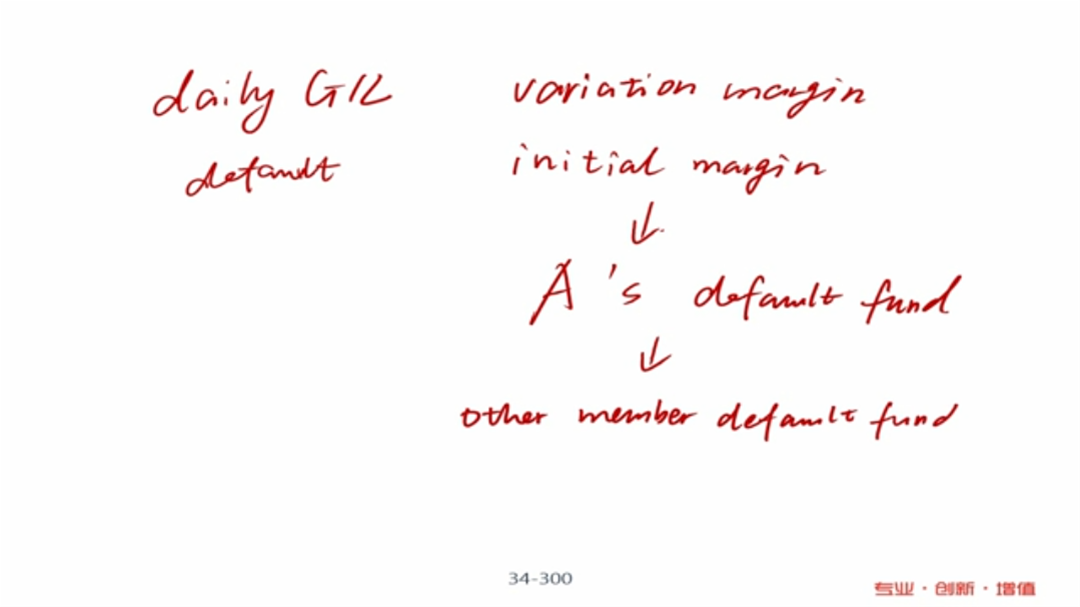 daily G/L variation margin
default initial margin
↓
A's default fund
↓
other member default fund
34-300
专业·创新·增值